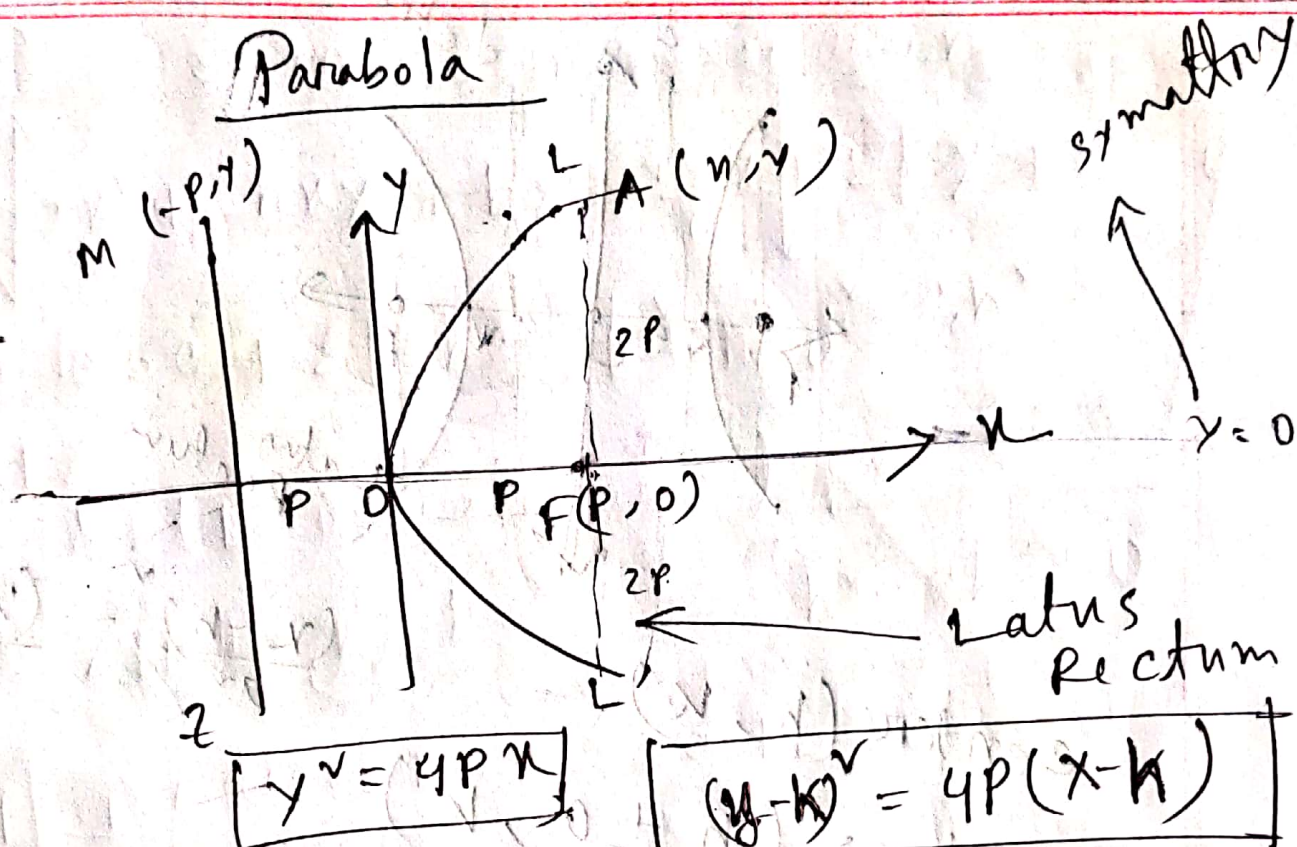 Parabola
symattry
M (-P,Y)
Y
L
A (x,y)
2P
x
Y=0
P O P F(P,0)
2P
Latus
Rectum
Z
L'
y² = 4Px
(y-k)² = 4P(x-h)